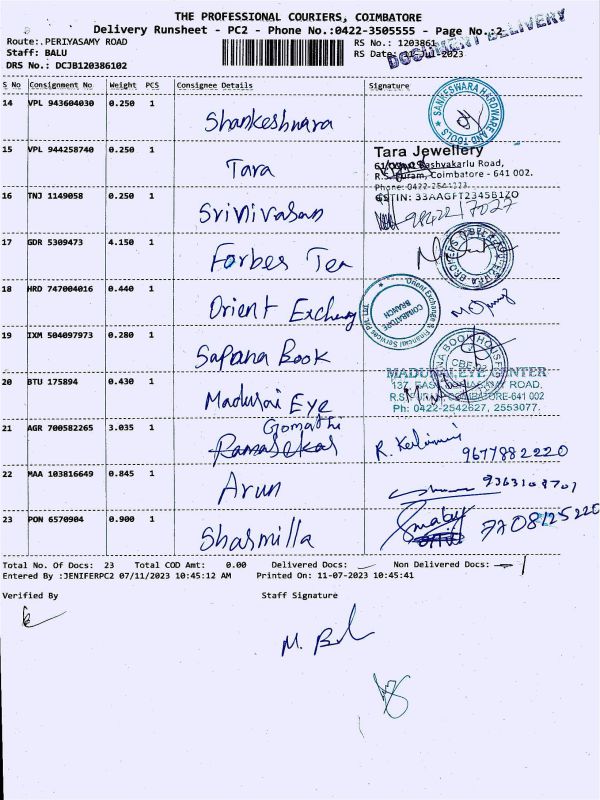 THE PROFESSIONAL COURIERS, COIMBATORE
Delivery Runsheet - PC2 - Phone No.:0422-3505555 - Page No.:2
DOCUMENT DELIVERY
Route:.PERIYASAMY ROAD RS No.: 1203861
Staff: BALU RS Date: Jul 2023
DRS No.: DCJB120386102
S No Consignment No Weight PCS Consignee Details Signature
14 VPL 943604030 0.250 1 Shankeshwara SANKESWARA HARDWARE AND TOOLS
15 VPL 944258740 0.250 1 Tara
Tara Jewellery
Bashyakarlu Road,
R.S. Puram, Coimbatore - 641 002.
Phone: 0422-
GSTIN: 33AAGFT2345B1ZO
16 TNJ 1149058 0.250 1 Srinivasan
17 GDR 5309473 4.150 1 Forbes Tea
18 HRD 747004016 0.440 1 Orient Exchang
Orient Exchange & Financial Services Pvt. Ltd. COIMBATORE BRANCH
19 IXM 504097973 0.280 1 Sapana Book
BOOK HOUSE
20 BTU 175894 0.430 1 Madurai Eye
MADURAI EYE CENTER
137, EAST ROAD,
R.S. COIMBATORE-641 002
Ph: 0422-2542627, 2553077.
21 AGR 700582265 3.035 1 Gomathi
9677882220
22 MAA 103816649 0.845 1 Arun 9363108701
23 PON 6570904 0.900 1 Sharmilla 7708125220
Total No. Of Docs: 23 Total COD Amt: 0.00 Delivered Docs: Non Delivered Docs:
Entered By :JENIFERPC2 07/11/2023 10:45:12 AM Printed On: 11-07-2023 10:45:41
Verified By Staff Signature